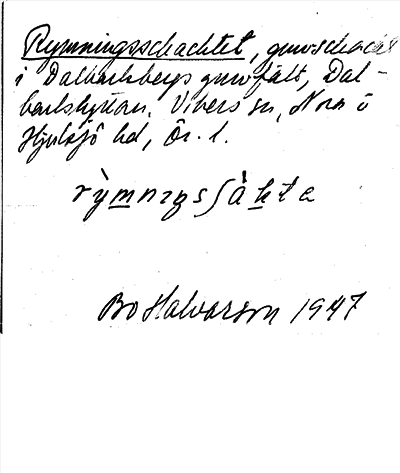 Rymningsschachtet, gruvschacht
i Dalkarlsbergs gruvfält, Dal-
karlshyttan. Vikers sn, Nora o
Hjulsjö hd, Ör. l.
rỳmnıŋsʃàkta
Bo Halvarson 1947